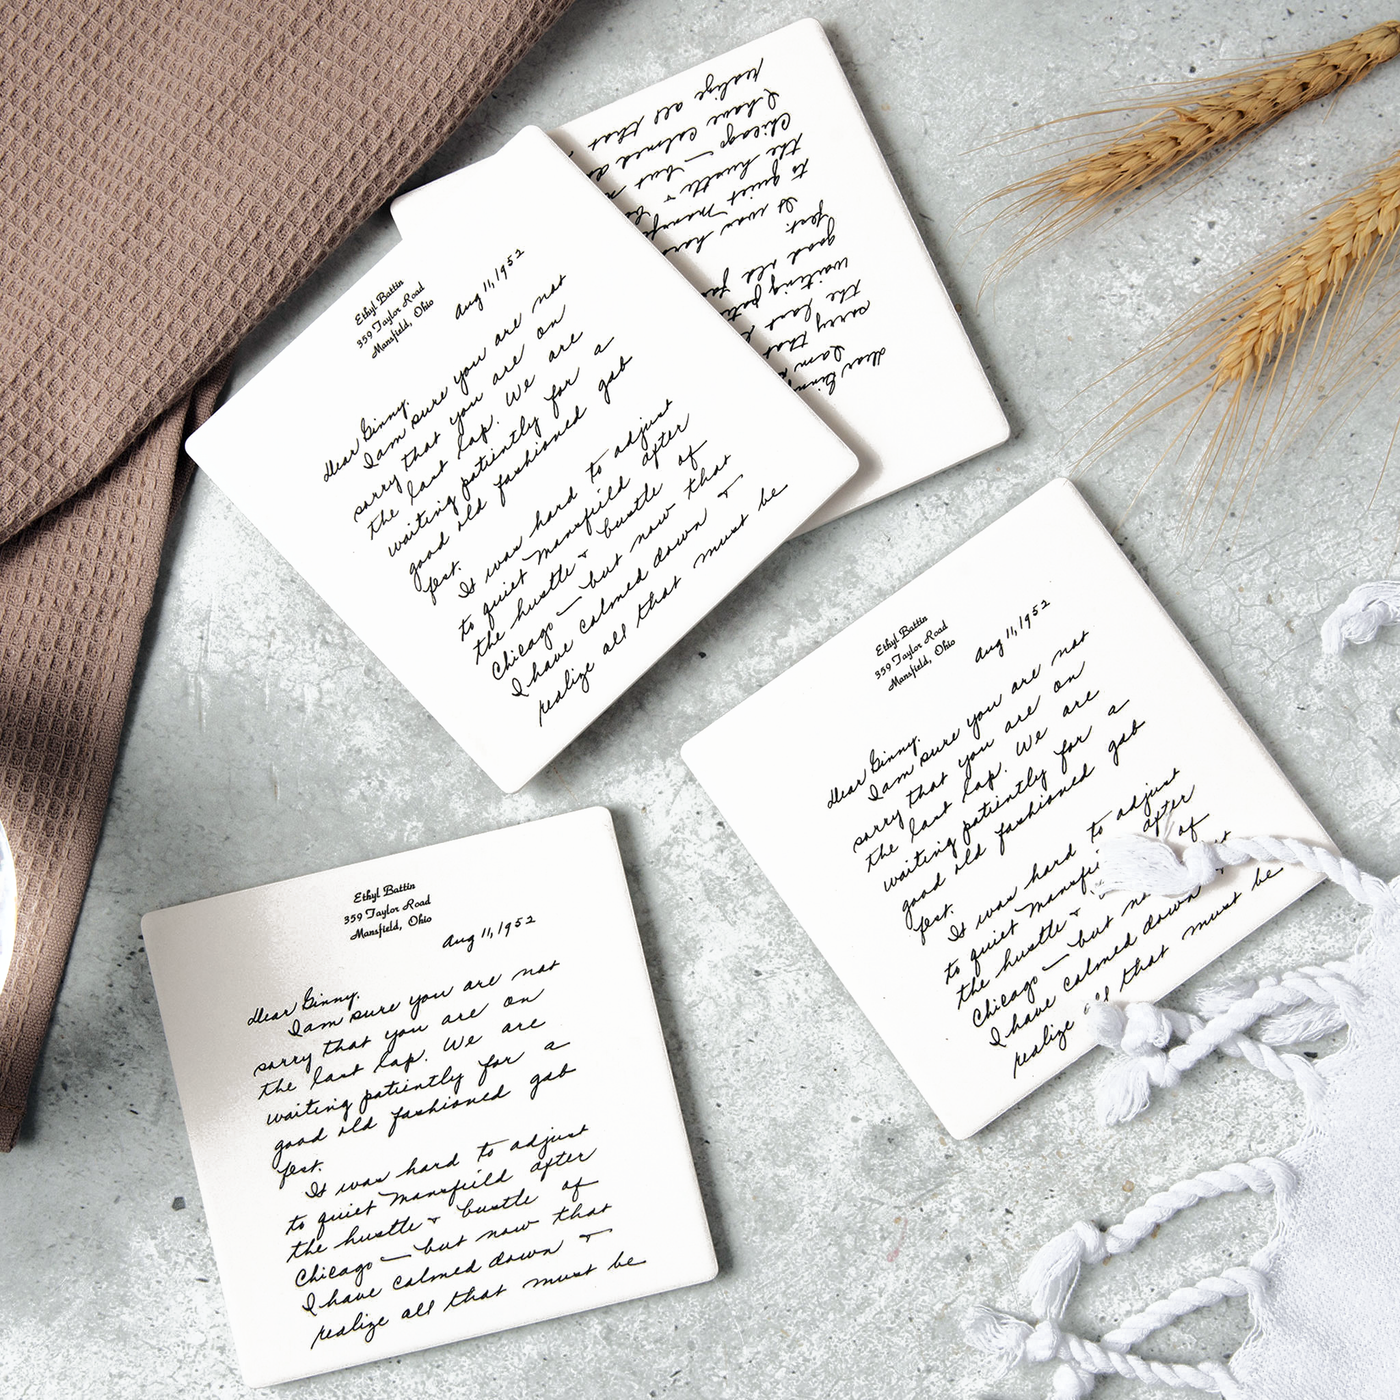 Ethyl Battin
359 Taylor Road
Mansfield, Ohio
Aug 11, 1952
Dear Ginny,
I am sure you are not
sorry that you are on
the last lap. We are
waiting patiently for a
good old fashioned gab
fest.
It was hard to adjust
to quiet Mansfield after
the hustle & bustle of
Chicago — but now that
I have calmed down &
realize all that must be
Dear Ginny
I am
sorry that
the last
waiting
good old
fest.
It was hard
to quiet
the hustle &
Chicago — but
I have calmed
realize all that
Ethyl Battin
359 Taylor Road
Mansfield, Ohio
Aug 11, 1952
Dear Ginny,
I am sure you are not
sorry that you are on
the last lap. We are
waiting patiently for a
good old fashioned gab
fest.
It was hard to adjust
to quiet after
the hustle & of
Chicago — but
I have calmed down
realize that must be
Ethyl Battin
359 Taylor Road
Mansfield, Ohio
Aug 11, 1952
Dear Ginny,
I am sure you are not
sorry that you are on
the last lap. We are
waiting patiently for a
good old fashioned gab
fest.
It was hard to adjust
to quiet Mansfield after
the hustle & bustle of
Chicago — but now that
I have calmed down &
realize all that must be